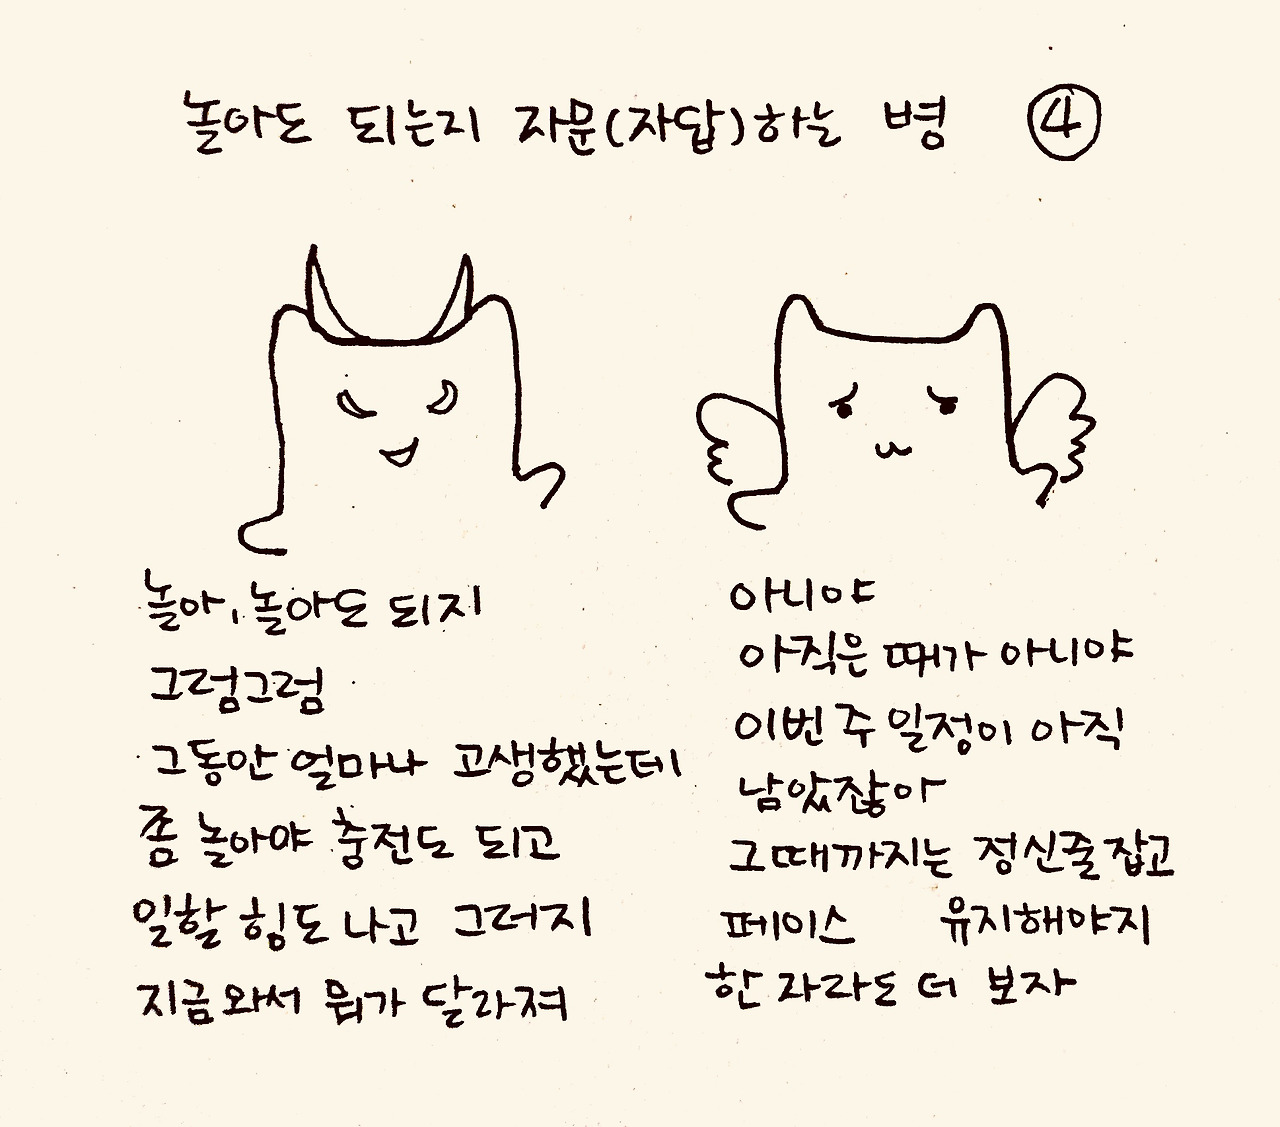 놀아도 되는지 자문(자답)하는 병 ④
놀아, 놀아도 되지
그럼그럼
그동안 얼마나 고생했는데
좀 놀아야 충전도 되고
일할 힘도 나고 그러지
지금와서 뭐가 달라져
아니야
아직은 때가 아니야
이번 주 일정이 아직
남았잖아
그때까지는 정신줄잡고
페이스 유지해야지
한 자라도 더 보자